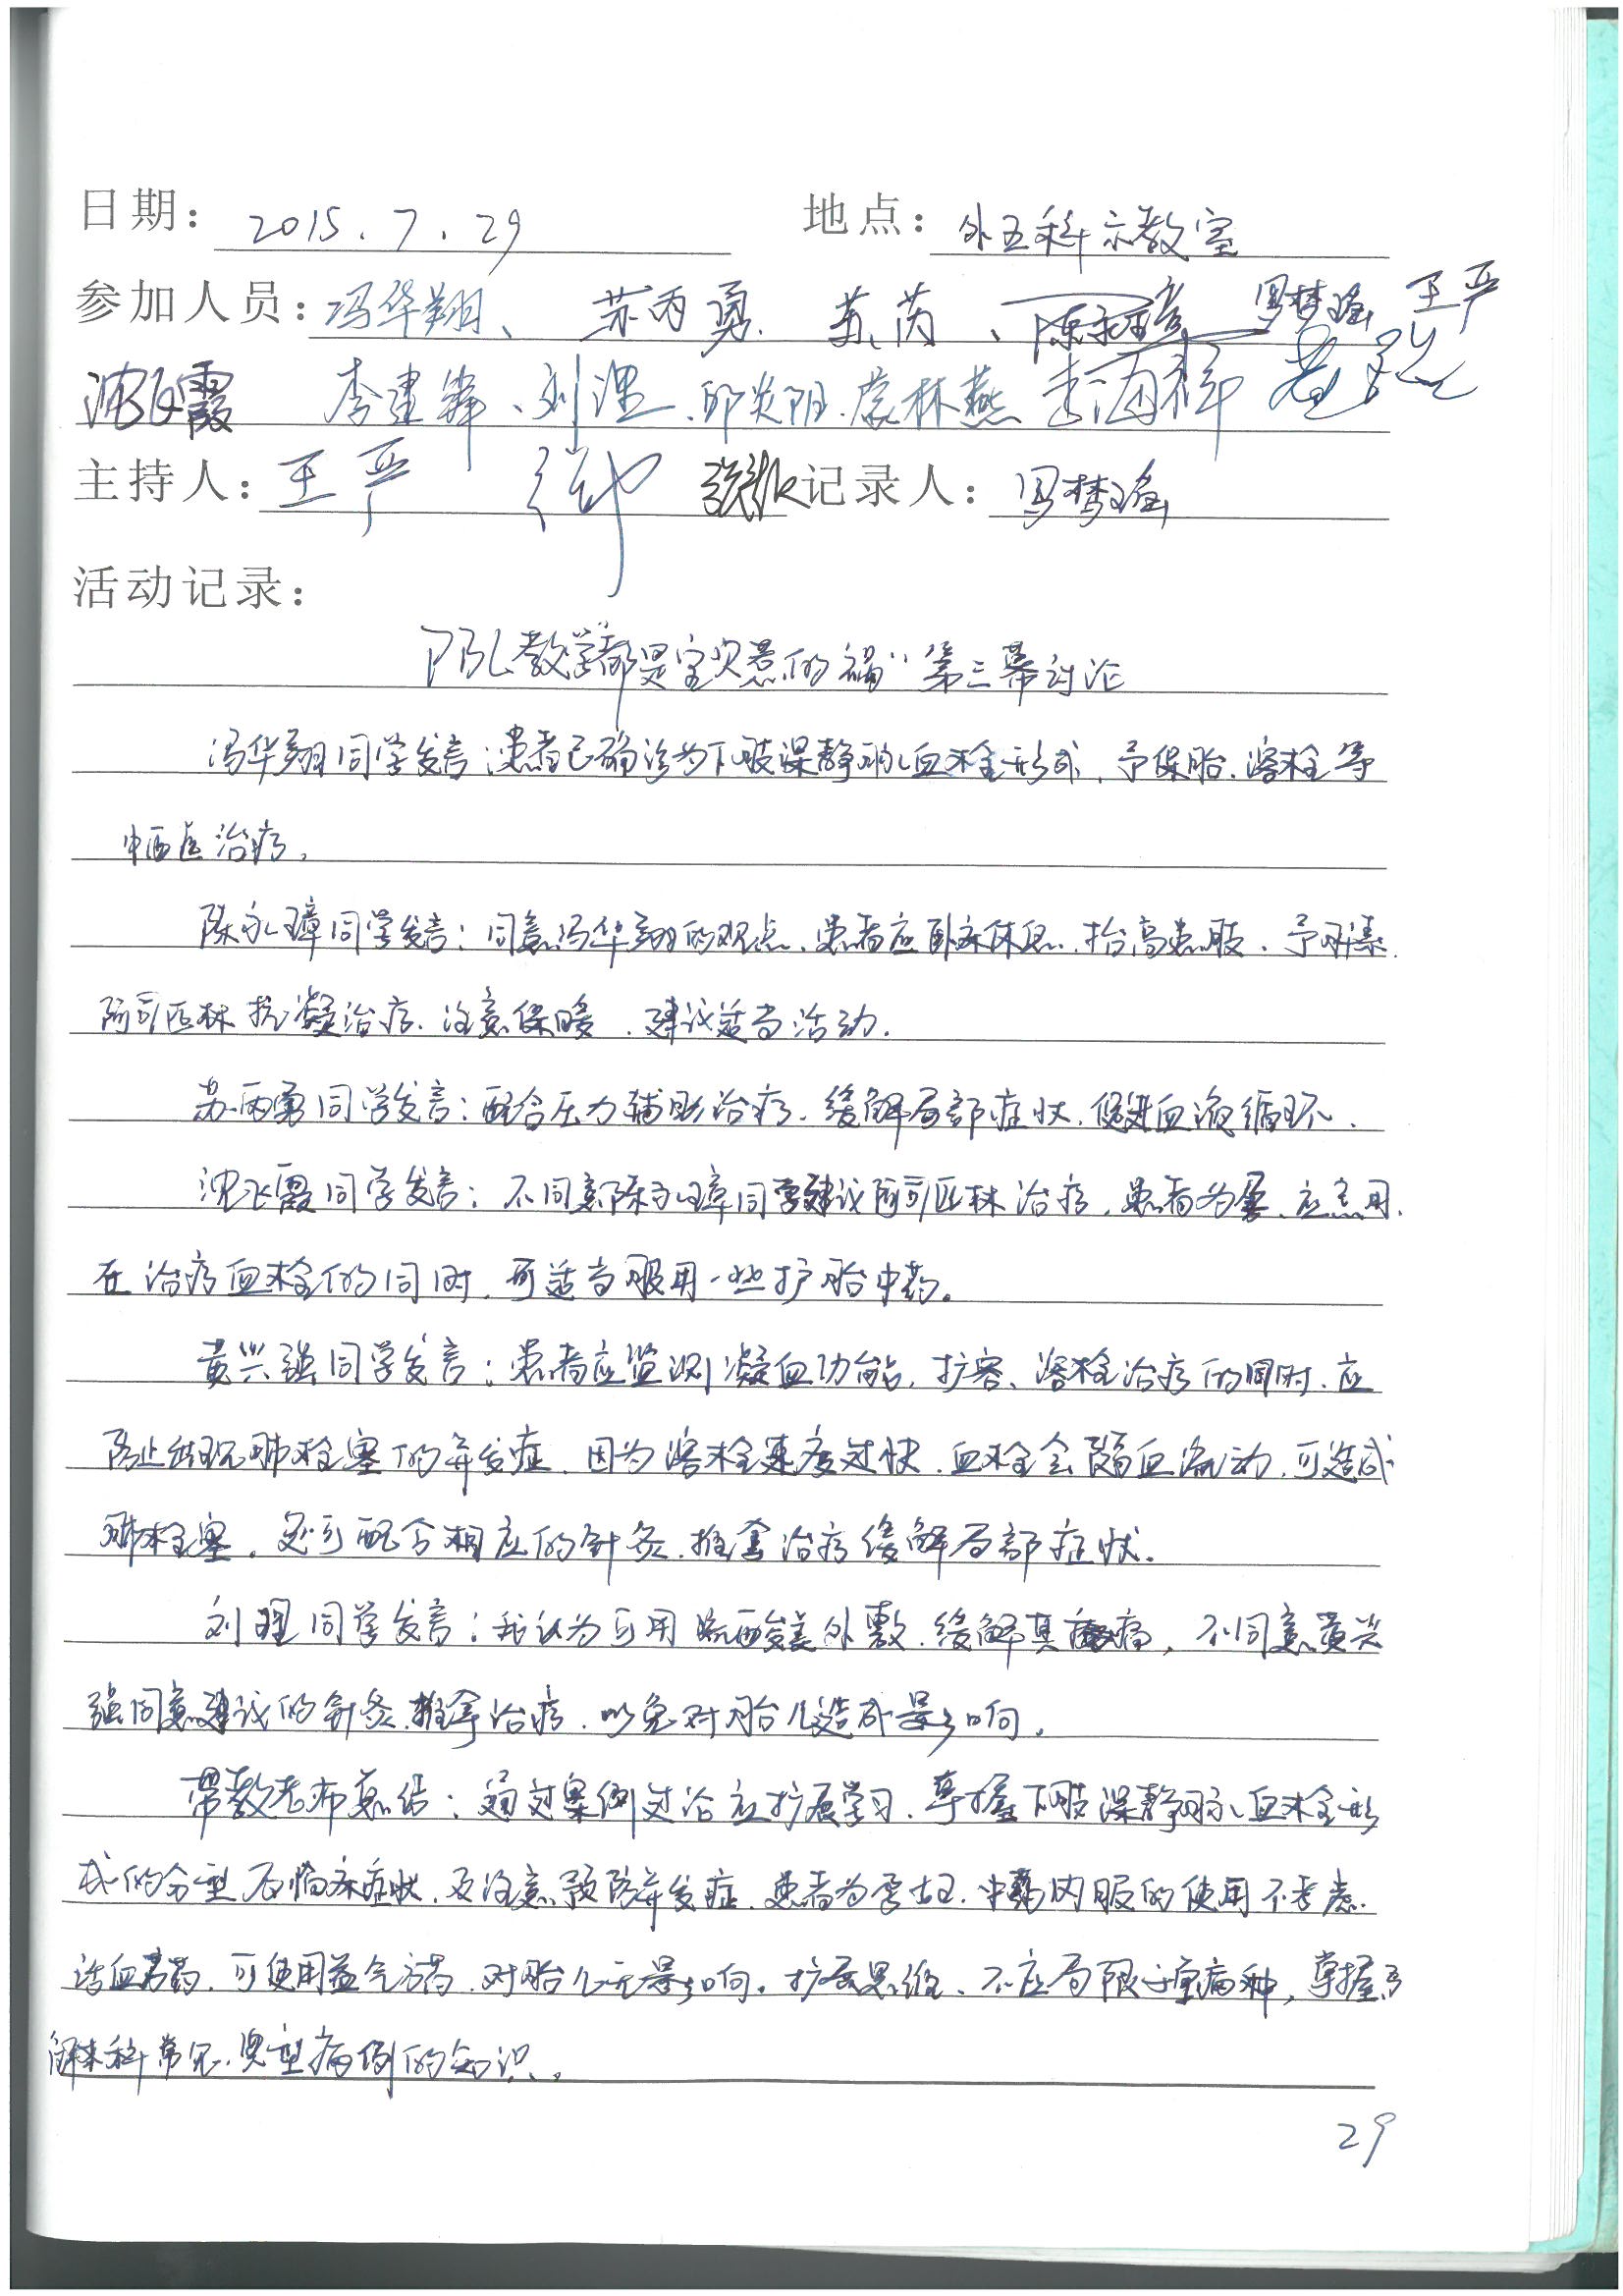 日期：2015.7.29 地点：外五科示教室
参加人员：冯华翔、苏丙勇、苏芮、陈永璋 罗梦瑶 王严
沈飞霞 李建锋、刘理、邱炎阳、蒙林燕 李海祥 黄兴强
主持人：王严 记录人：罗梦瑶
活动记录：
PBL教学“都是宝贝惹的祸”第三幕讨论
冯华翔同学发言：患者已确诊为下肢深静脉血栓形成，予保胎、溶栓等
中西医治疗。
陈永璋同学发言：同意冯华翔的观点，患者应卧床休息，抬高患肢，予肝素、
阿司匹林抗凝治疗，注意保暖，建议适当活动。
苏丙勇同学发言：配合压力辅助治疗，缓解局部症状，促进血液循环。
沈飞霞同学发言：不同意陈永璋同学建议阿司匹林治疗，患者为孕，应忌用，
在治疗血栓的同时，可适当服用一些护胎中药。
黄兴强同学发言：患者应监测凝血功能，扩容、溶栓治疗的同时，应
防止出现肺栓塞的并发症，因为溶栓速度过快，血栓会随血流动，可造成
肺栓塞，还可配合相应的针灸、推拿治疗缓解局部症状。
刘理同学发言：我认为可用硫酸镁外敷，缓解其疼痛，不同意黄兴
强同意建议的针灸、推拿治疗，以免对胎儿造成影响。
带教老师总结：通过案例讨论应扩展学习，掌握下肢深静脉血栓形
成的分型及临床症状，及注意预防并发症，患者为孕妇，中药内服的使用不考虑
活血药，可使用益气方药，对胎儿无影响。扩展思维，不应局限于单病种，掌握了
解本科常见、典型病例的知识。
29